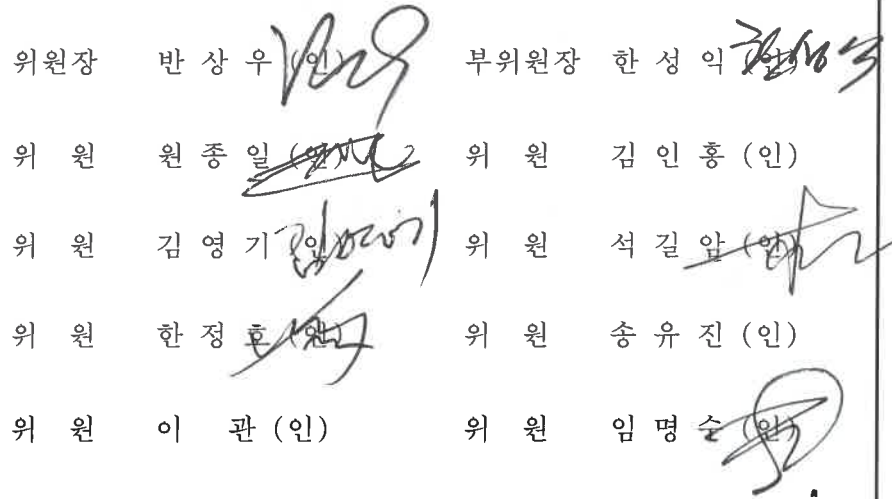 위원장 반 상 우 (인) 부위원장 한 성 익 (인)
위 원 원 종 일 (인) 위 원 김 인 홍 (인)
위 원 김 영 기 (인) 위 원 석 길 암 (인)
위 원 한 정 호 (인) 위 원 송 유 진 (인)
위 원 이 관 (인) 위 원 임 명 (인)